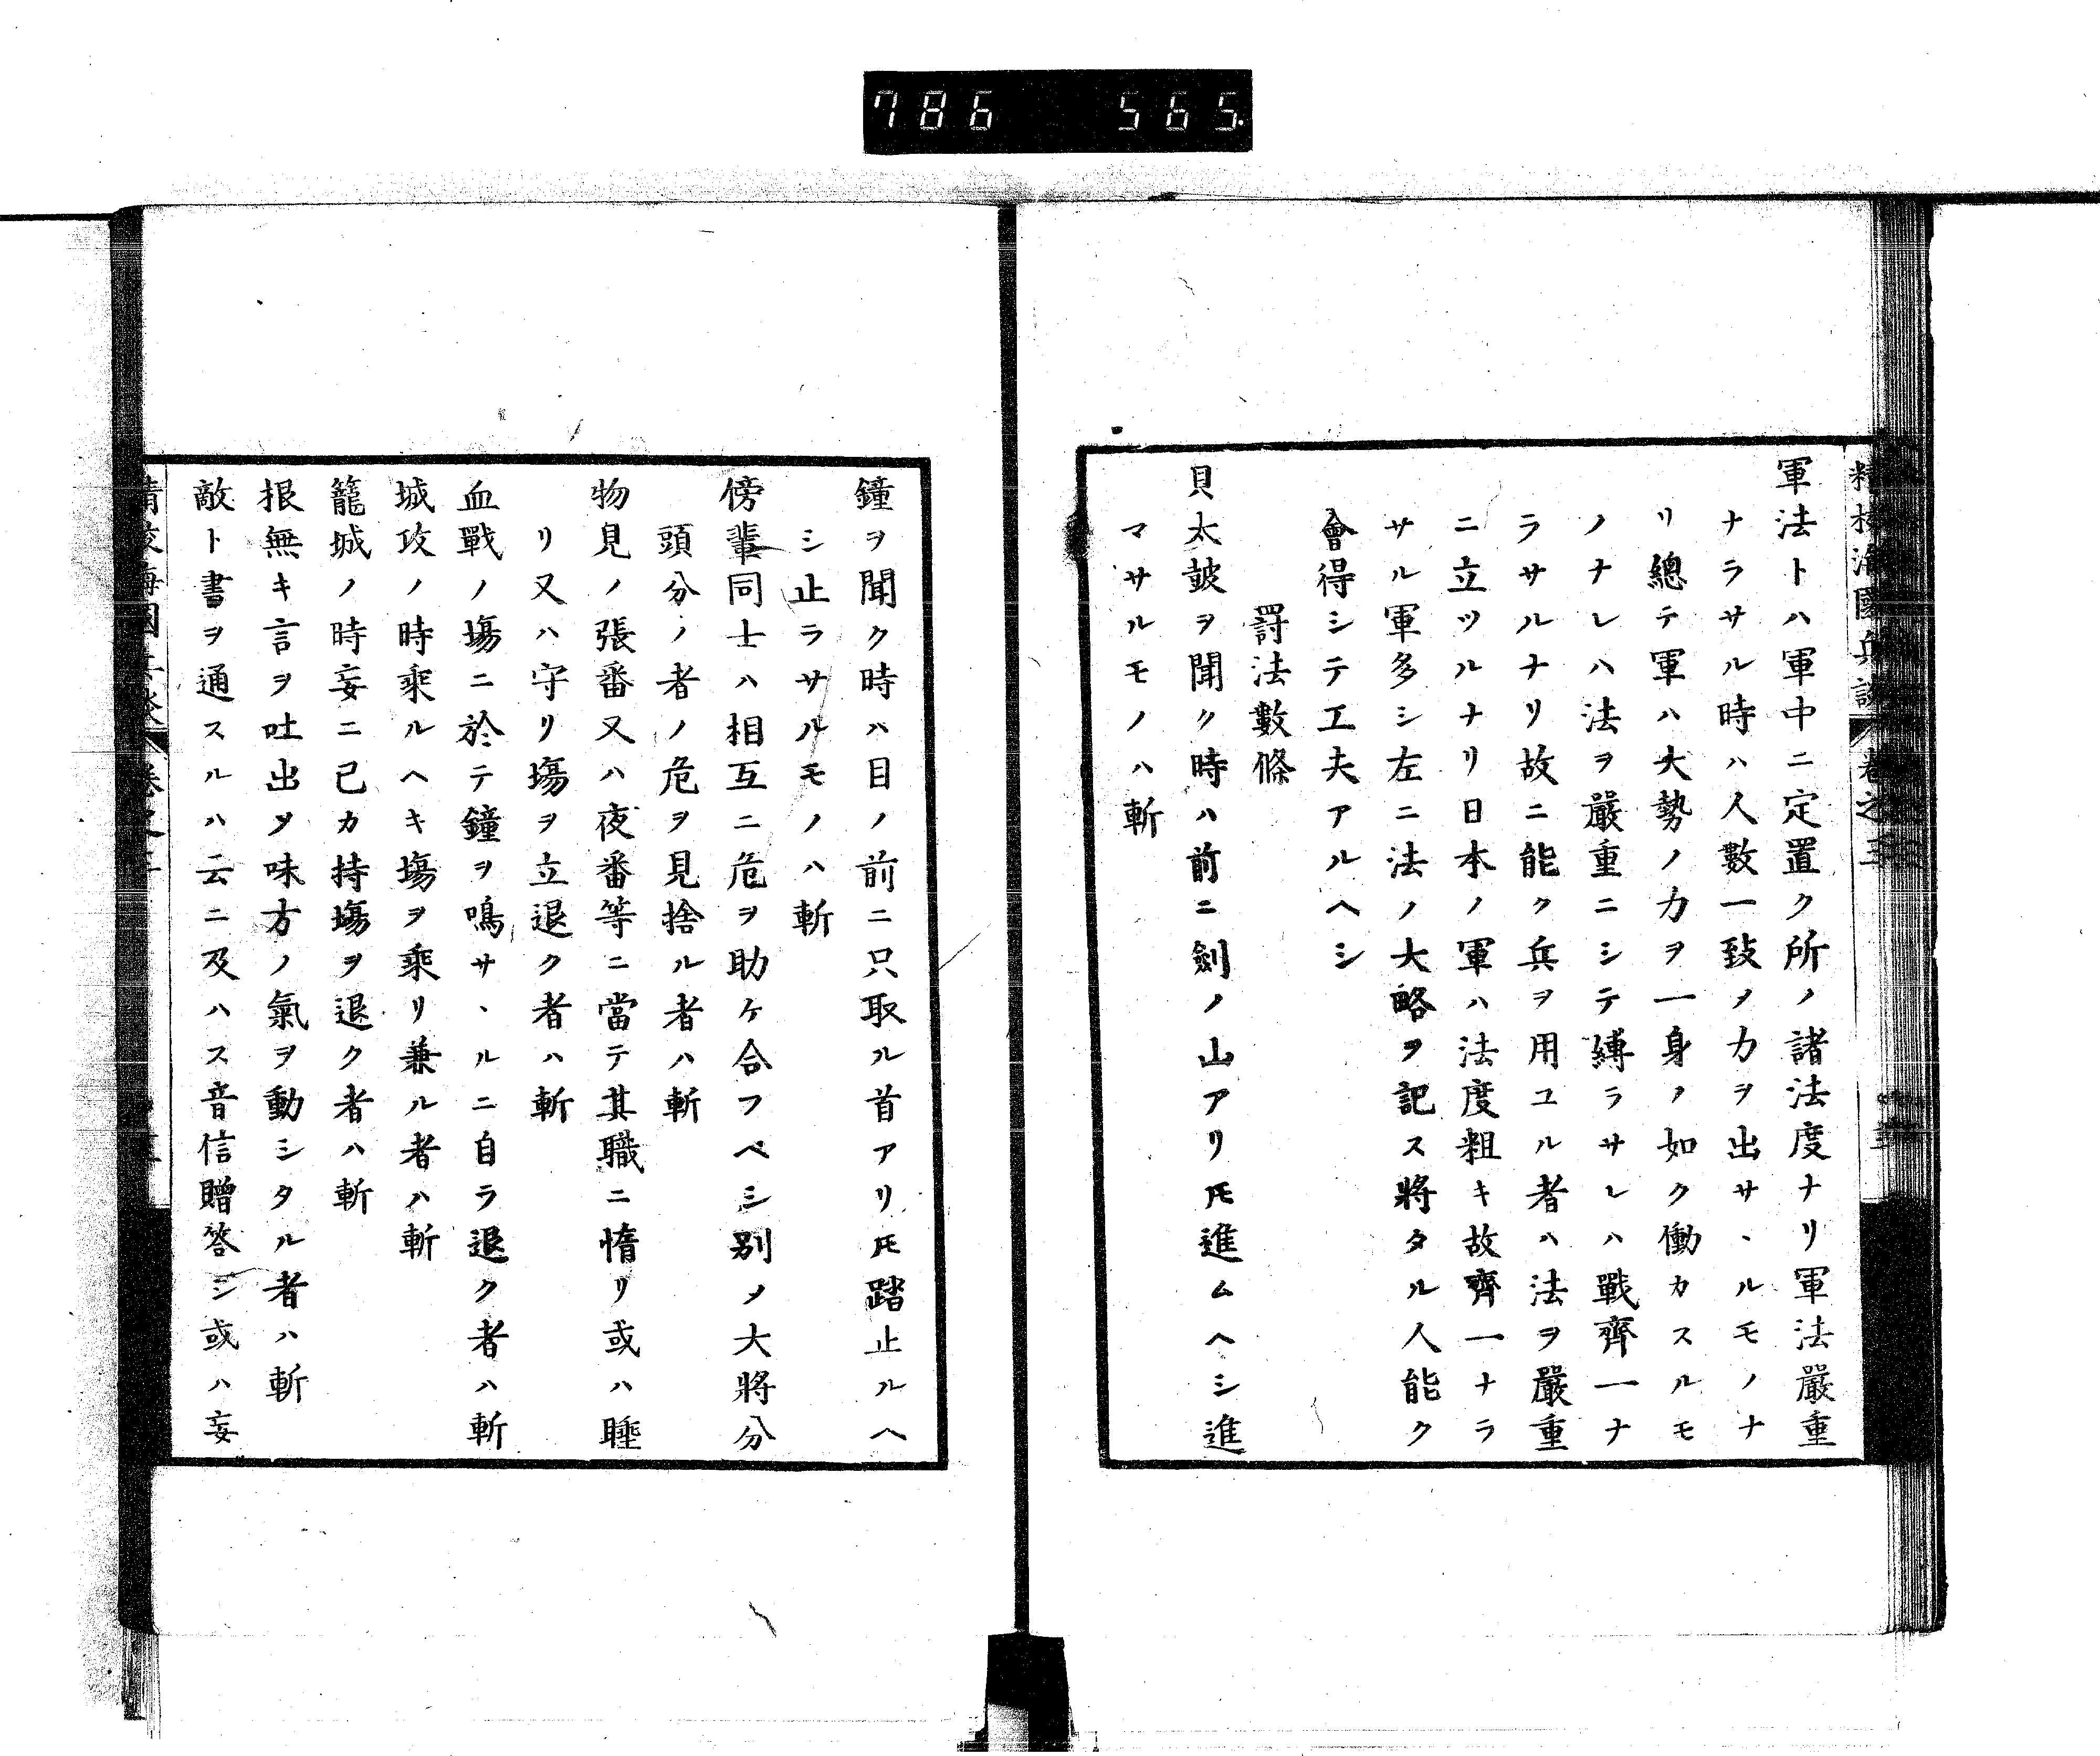 786 565
軍法トハ軍中ニ定置ク所ノ諸法度ナリ軍法嚴重
ナラサル時ハ人數一致〆力ヲ出サヽルモノナ
リ總テ軍ハ大勢ノ力ヲ一身ノ如ク働カスルモ
ノナレハ法ヲ嚴重ニシテ縛ラサレハ戰齊一ナ
ラサルナリ故ニ能ク兵ヲ用ユル者ハ法ヲ嚴重
ニ立ツルナリ日本ノ軍ハ法度粗キ故齊一ナラ
サル軍多シ左ニ法ノ大略ヲ記ス將タル人能ク
會得シテ工夫アルヘシ
罸法數條
貝太皷ヲ聞ク時ハ前ニ劍ノ山アリ𪜈進ムヘシ進
マサルモノハ斬
鐘ヲ聞ク時ハ目ノ前ニ只取ル首アリ𪜈踏止ルヘ
シ止ラサルモノハ斬
傍輩同士ハ相互ニ危ヲ助ケ合フベシ別ノ大將分
頭分ノ者ノ危ヲ見捨ル者ハ斬
物見ノ張番又ハ夜番等ニ當テ其職ニ惰リ或ハ睡
リ又ハ守リ塲ヲ立退ク者ハ斬
血戰ノ塲ニ於テ鐘ヲ鳴サヽルニ自ラ退ク者ハ斬
城攻ノ時乘ルヘキ塲ヲ乘リ兼ル者ハ斬
籠城ノ時妄ニ己カ持塲ヲ退ク者ハ斬
根無キ言ヲ吐出〆味方ノ氣ヲ動シタル者ハ斬
敵ト書ヲ通スルハ云ニ及ハス音信贈答シ或ハ妄